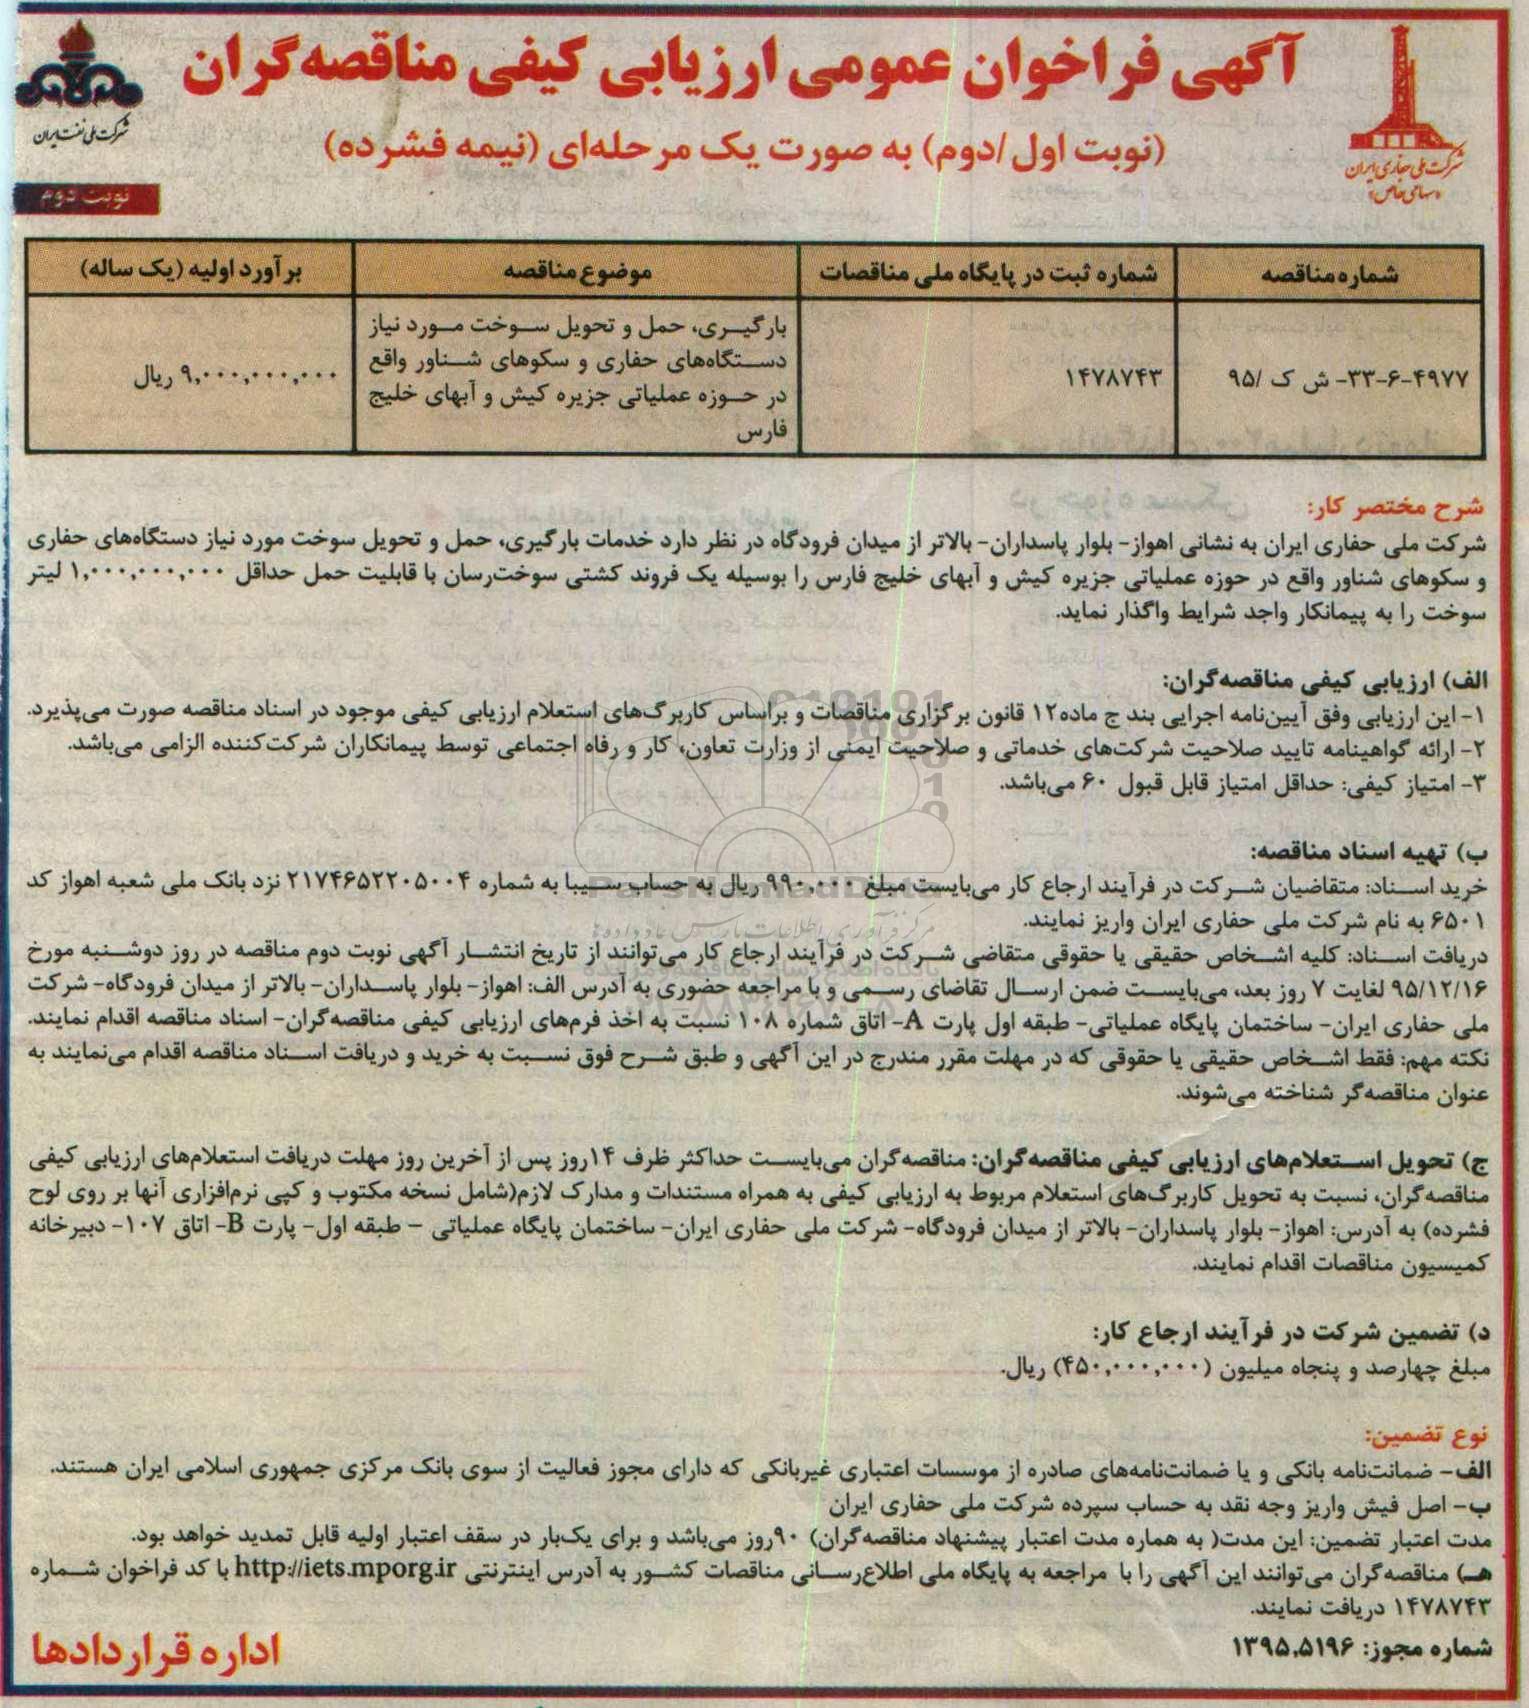 آگهی فراخوان عمومی ارزیابی کیفی مناقصه‌گران
(نوبت اول/دوم) به صورت یک مرحله‌ای (نیمه فشرده)
شرکت ملی حفاری ایران
«سهامی خاص»
شرکت ملی نفت ایران
نوبت دوم
شماره مناقصه
شماره ثبت در پایگاه ملی مناقصات
موضوع مناقصه
برآورد اولیه (یک ساله)
۳۳-۶-۴۹۷۷- ش ک /۹۵
۱۴۷۸۷۴۳
بارگیری، حمل و تحویل سوخت مورد نیاز
دستگاه‌های حفاری و سکوهای شناور واقع
در حوزه عملیاتی جزیره کیش و آبهای خلیج
فارس
۹,۰۰۰,۰۰۰,۰۰۰ ریال
شرح مختصر کار:
شرکت ملی حفاری ایران به نشانی اهواز- بلوار پاسداران- بالاتر از میدان فرودگاه در نظر دارد خدمات بارگیری، حمل و تحویل سوخت مورد نیاز دستگاه‌های حفاری
و سکوهای شناور واقع در حوزه عملیاتی جزیره کیش و آبهای خلیج فارس را بوسیله یک فروند کشتی سوخت‌رسان با قابلیت حمل حداقل ۱,۰۰۰,۰۰۰,۰۰۰ لیتر
سوخت را به پیمانکار واجد شرایط واگذار نماید.
الف) ارزیابی کیفی مناقصه‌گران:
۱- این ارزیابی وفق آیین‌نامه اجرایی بند ج ماده۱۲ قانون برگزاری مناقصات و براساس کاربرگ‌های استعلام ارزیابی کیفی موجود در اسناد مناقصه صورت می‌پذیرد.
۲- ارائه گواهینامه تایید صلاحیت شرکت‌های خدماتی و صلاحیت ایمنی از وزارت تعاون، کار و رفاه اجتماعی توسط پیمانکاران شرکت‌کننده الزامی می‌باشد.
۳- امتیاز کیفی: حداقل امتیاز قابل قبول ۶۰ می‌باشد.
ب) تهیه اسناد مناقصه:
خرید اسناد: متقاضیان شرکت در فرآیند ارجاع کار می‌بایست مبلغ ۹۹۰,۰۰۰ ریال به حساب سیبا به شماره ۲۱۷۴۶۵۲۲۰۵۰۰۴ نزد بانک ملی شعبه اهواز کد
۶۵۰۱ به نام شرکت ملی حفاری ایران واریز نمایند.
دریافت اسناد: کلیه اشخاص حقیقی یا حقوقی متقاضی شرکت در فرآیند ارجاع کار می‌توانند از تاریخ انتشار آگهی نوبت دوم مناقصه در روز دوشنبه مورخ
۹۵/۱۲/۱۶ لغایت ۷ روز بعد، می‌بایست ضمن ارسال تقاضای رسمی و با مراجعه حضوری به آدرس الف: اهواز- بلوار پاسداران- بالاتر از میدان فرودگاه- شرکت
ملی حفاری ایران- ساختمان پایگاه عملیاتی- طبقه اول پارت A- اتاق شماره ۱۰۸ نسبت به اخذ فرم‌های ارزیابی کیفی مناقصه‌گران- اسناد مناقصه اقدام نمایند.
نکته مهم: فقط اشخاص حقیقی یا حقوقی که در مهلت مقرر مندرج در این آگهی و طبق شرح فوق نسبت به خرید و دریافت اسناد مناقصه اقدام می‌نمایند به
عنوان مناقصه‌گر شناخته می‌شوند.
ج) تحویل استعلام‌های ارزیابی کیفی مناقصه‌گران: مناقصه‌گران می‌بایست حداکثر ظرف ۱۴روز پس از آخرین روز مهلت دریافت استعلام‌های ارزیابی کیفی
مناقصه‌گران، نسبت به تحویل کاربرگ‌های استعلام مربوط به ارزیابی کیفی به همراه مستندات و مدارک لازم(شامل نسخه مکتوب و کپی نرم‌افزاری آنها بر روی لوح
فشرده) به آدرس: اهواز- بلوار پاسداران- بالاتر از میدان فرودگاه- شرکت ملی حفاری ایران- ساختمان پایگاه عملیاتی – طبقه اول- پارت B- اتاق ۱۰۷- دبیرخانه
کمیسیون مناقصات اقدام نمایند.
د) تضمین شرکت در فرآیند ارجاع کار:
مبلغ چهارصد و پنجاه میلیون (۴۵۰,۰۰۰,۰۰۰) ریال.
نوع تضمین:
الف- ضمانت‌نامه بانکی و یا ضمانت‌نامه‌های صادره از موسسات اعتباری غیربانکی که دارای مجوز فعالیت از سوی بانک مرکزی جمهوری اسلامی ایران هستند.
ب- اصل فیش واریز وجه نقد به حساب سپرده شرکت ملی حفاری ایران
مدت اعتبار تضمین: این مدت( به هماره مدت اعتبار پیشنهاد مناقصه‌گران) ۹۰روز می‌باشد و برای یک‌بار در سقف اعتبار اولیه قابل تمدید خواهد بود.
هـ) مناقصه‌گران می‌توانند این آگهی را با مراجعه به پایگاه ملی اطلاع‌رسانی مناقصات کشور به آدرس اینترنتی http://iets.mporg.ir با کد فراخوان شماره
۱۴۷۸۷۴۳ دریافت نمایند.
شماره مجوز: ۱۳۹۵.۵۱۹۶
اداره قراردادها